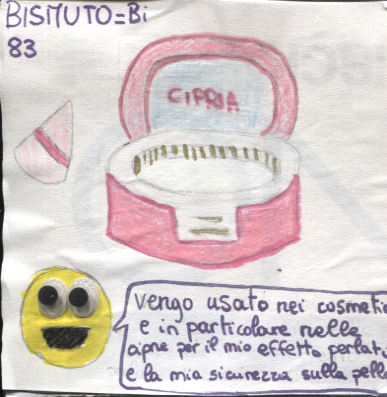 BISMUTO=Bi
83
CIPRIA
Vengo usato nei cosmetic
e in particolare nelle
ciprie per il mio effetto perlat
e la mia sicurezza sulla pelle